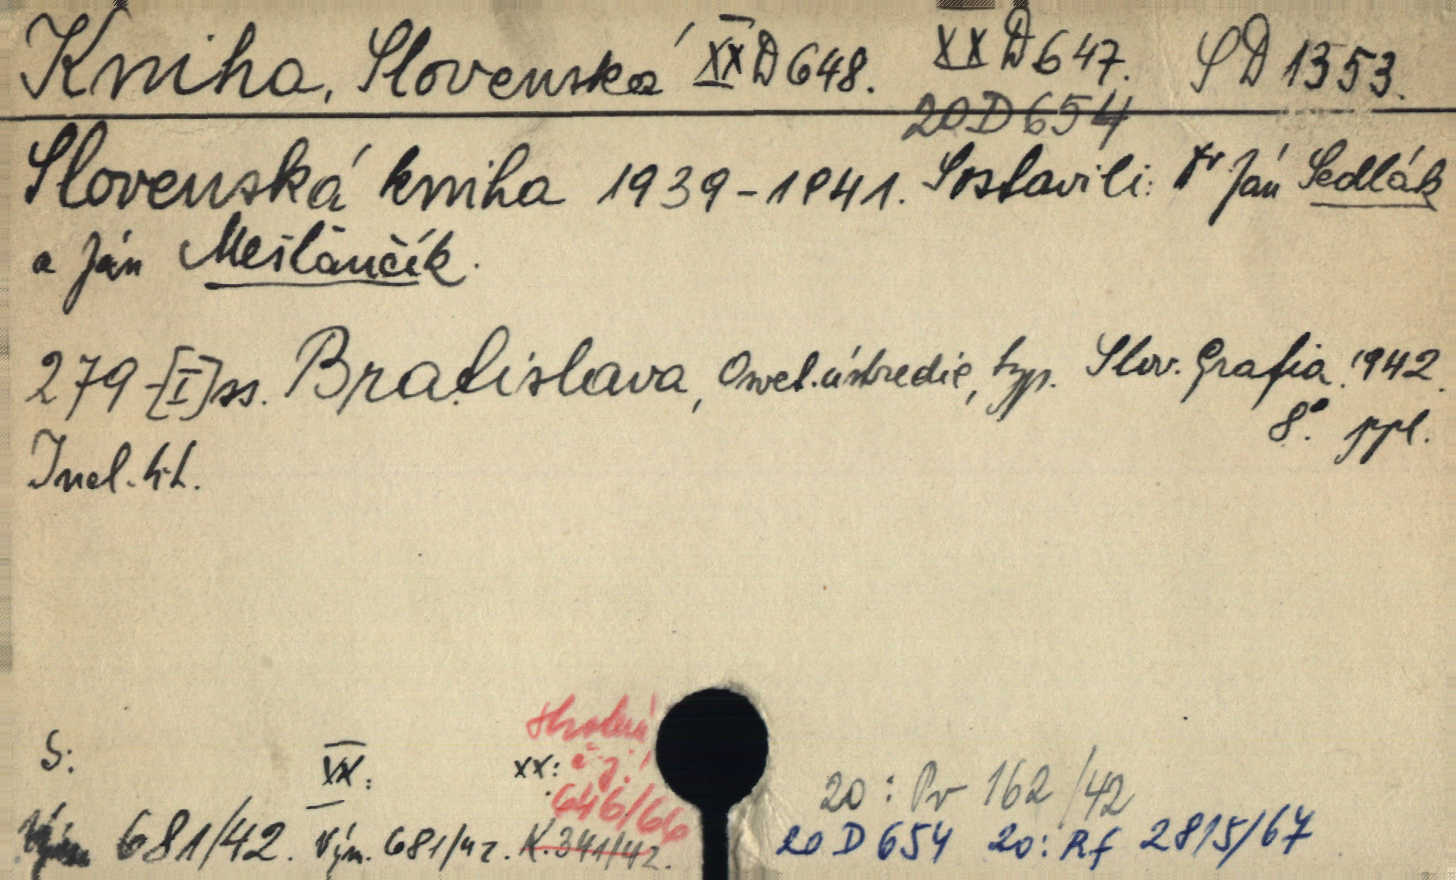 Kniha, Slovenská XX D 648. XX D 647. SD 1353.
20 D 654
Slovenská kniha 1939-1941. Sostavili: Dr Ján Sedlák
a Ján Mešťančík.
279-[I] ss. Bratislava, Osvet. ústredie, typ. Slov. Grafia. 1942.
8°. ppl.
S: XX: xx: 20: Pv 162/42
č. j.
646/66
681/42. Výn. 681/42. K. 341/42. 20 D 654 20: Rf 2815/67